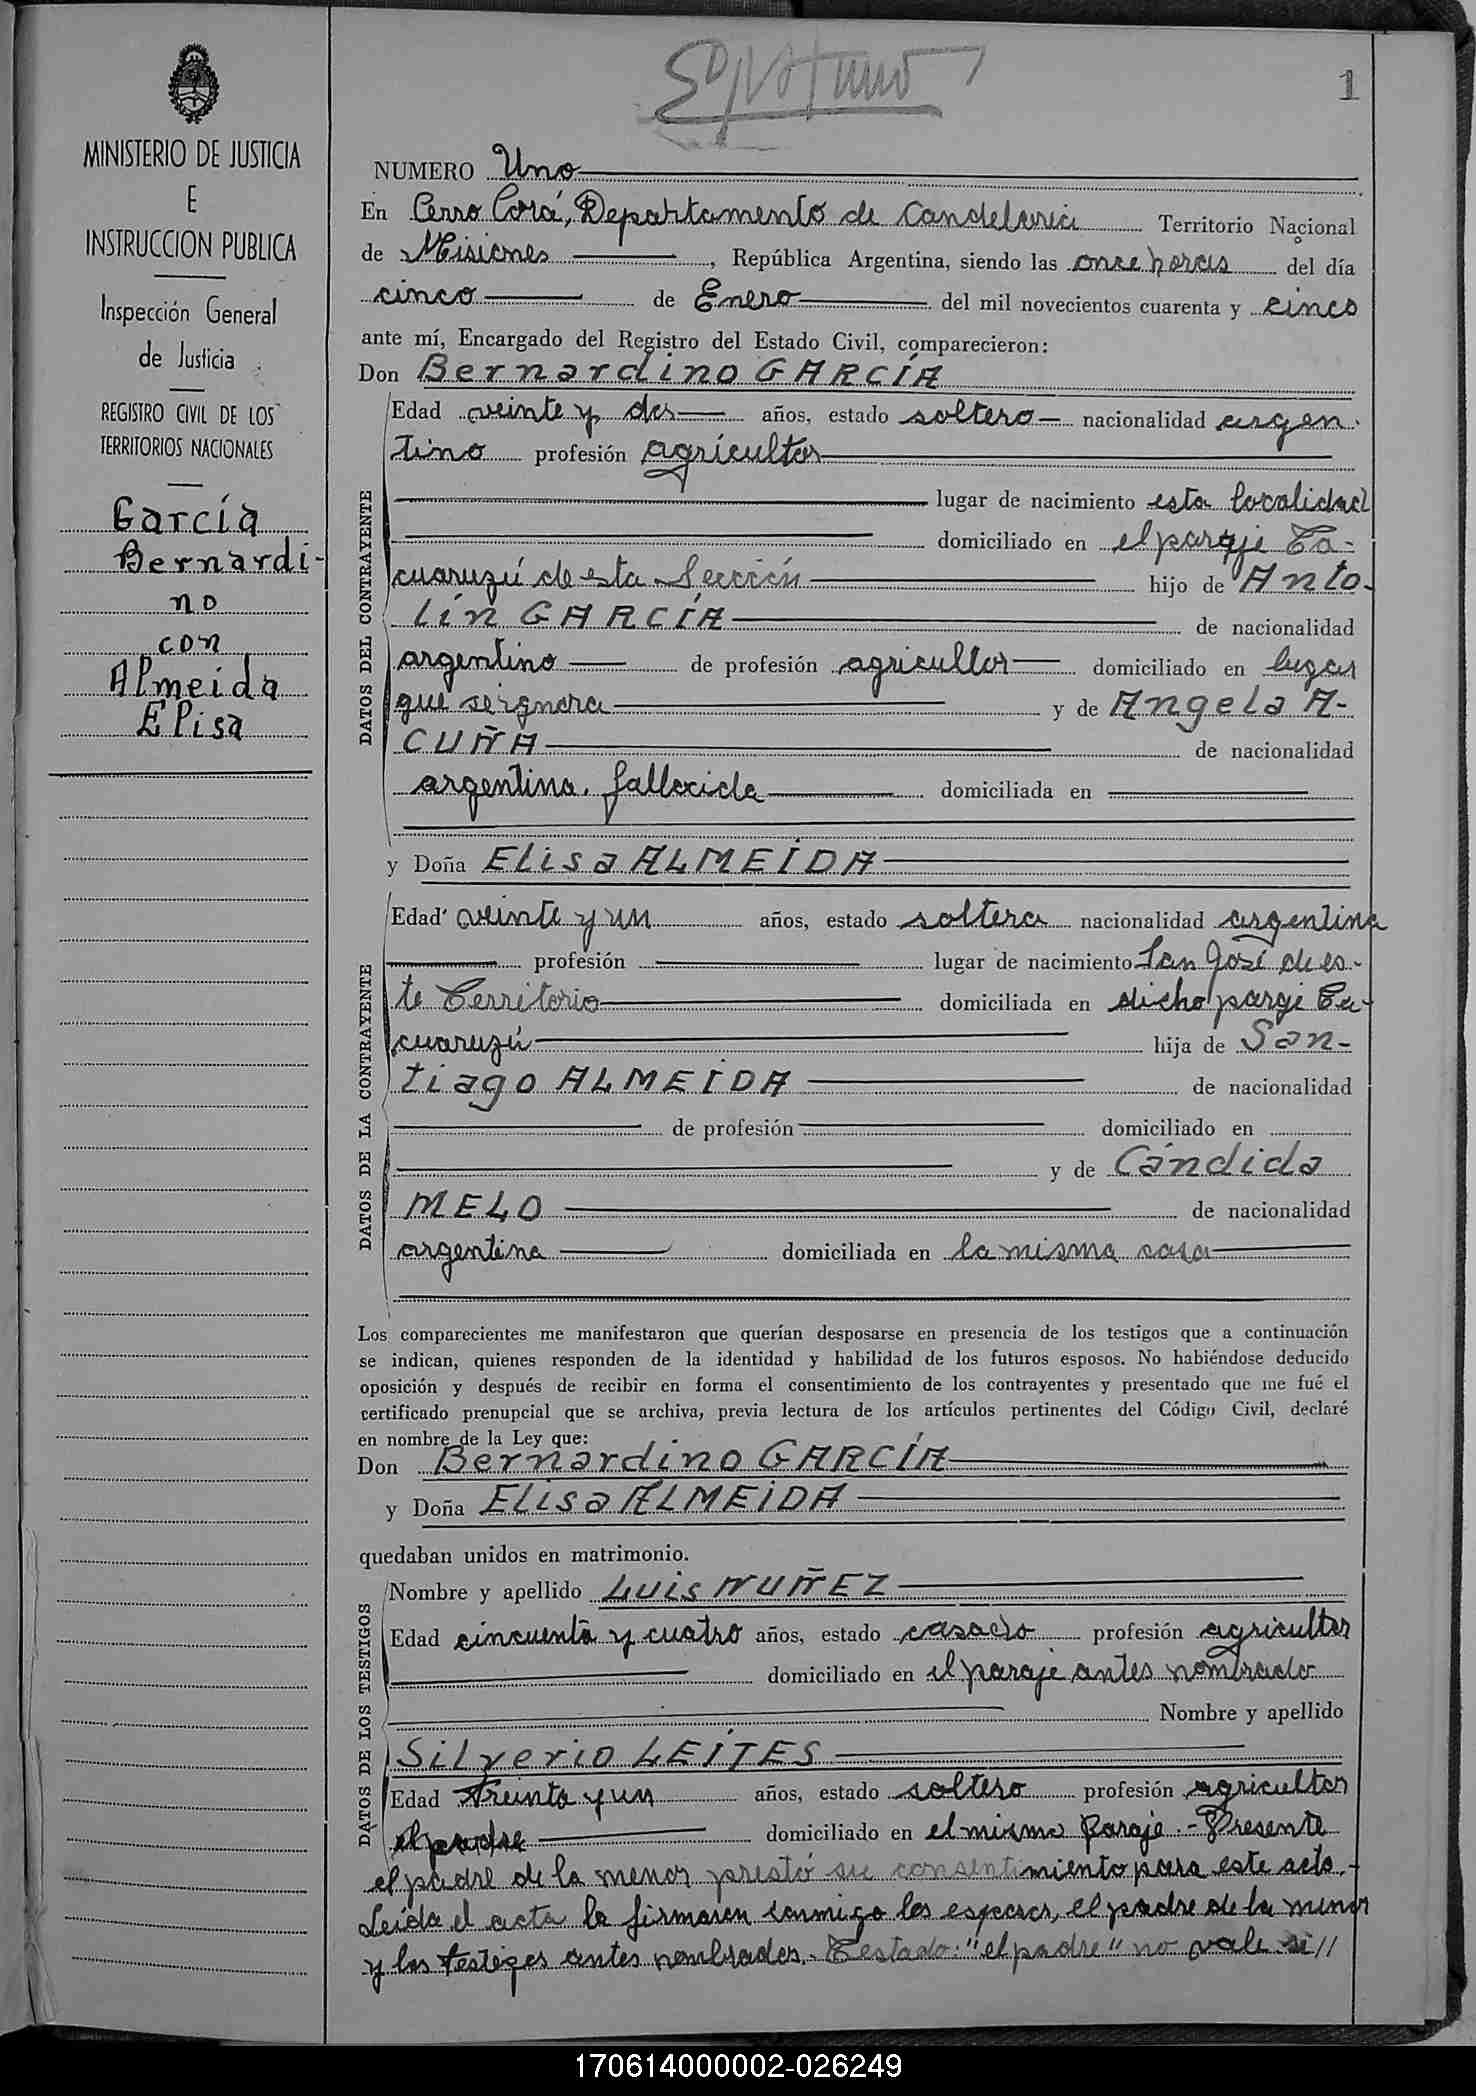 1
MINISTERIO DE JUSTICIA
E
INSTRUCCION PUBLICA
Inspección General
de Justicia
REGISTRO CIVIL DE LOS
TERRITORIOS NACIONALES
García
Bernardi-
no
con
Almeida
Elisa
NUMERO Uno
En Cerro Corá, Departamento de Candelaria Territorio Nacional
de Misiones, República Argentina, siendo las once horas del día
cinco de Enero del mil novecientos cuarenta y cinco
ante mí, Encargado del Registro del Estado Civil, comparecieron:
Don Bernardino GARCÍA
DATOS DEL CONTRAYENTE
Edad veinte y dos años, estado soltero nacionalidad argen
tino profesión agricultor
lugar de nacimiento esta localidad
domiciliado en el paraje Ta-
cuaruzú de esta Sección hijo de Anto-
lín GARCÍA de nacionalidad
argentino de profesión agricultor domiciliado en lugar
que se ignora y de Angela A-
CUÑA de nacionalidad
argentina, fallecida domiciliada en
y Doña Elisa ALMEIDA
DATOS DE LA CONTRAYENTE
Edad veinte y un años, estado soltera nacionalidad argentina
profesión lugar de nacimiento San José de es-
te Territorio domiciliada en dicho paraje Ta-
cuaruzú hija de San-
tiago ALMEIDA de nacionalidad
de profesión domiciliado en
y de Cándida
MELO de nacionalidad
argentina domiciliada en la misma casa
Los comparecientes me manifestaron que querían desposarse en presencia de los testigos que a continuación
se indican, quienes responden de la identidad y habilidad de los futuros esposos. No habiéndose deducido
oposición y después de recibir en forma el consentimiento de los contrayentes y presentado que me fué el
certificado prenupcial que se archiva, previa lectura de los artículos pertinentes del Código Civil, declaré
en nombre de la Ley que:
Don Bernardino GARCÍA
y Doña Elisa ALMEIDA
quedaban unidos en matrimonio.
DATOS DE LOS TESTIGOS
Nombre y apellido Luis NUÑEZ
Edad cincuenta y cuatro años, estado casado profesión agricultor
domiciliado en el paraje antes nombrado
Nombre y apellido
Silverio LEITES
Edad treinta y un años, estado soltero profesión agricultor
el padre domiciliado en el mismo paraje.- Presente
el padre de la menor prestó su consentimiento para este acto.-
Leída el acta la firmaron conmigo los esposos, el padre de la menor
y los testigos antes nombrados. Testado: "el padre" no vale si//
170614000002-026249